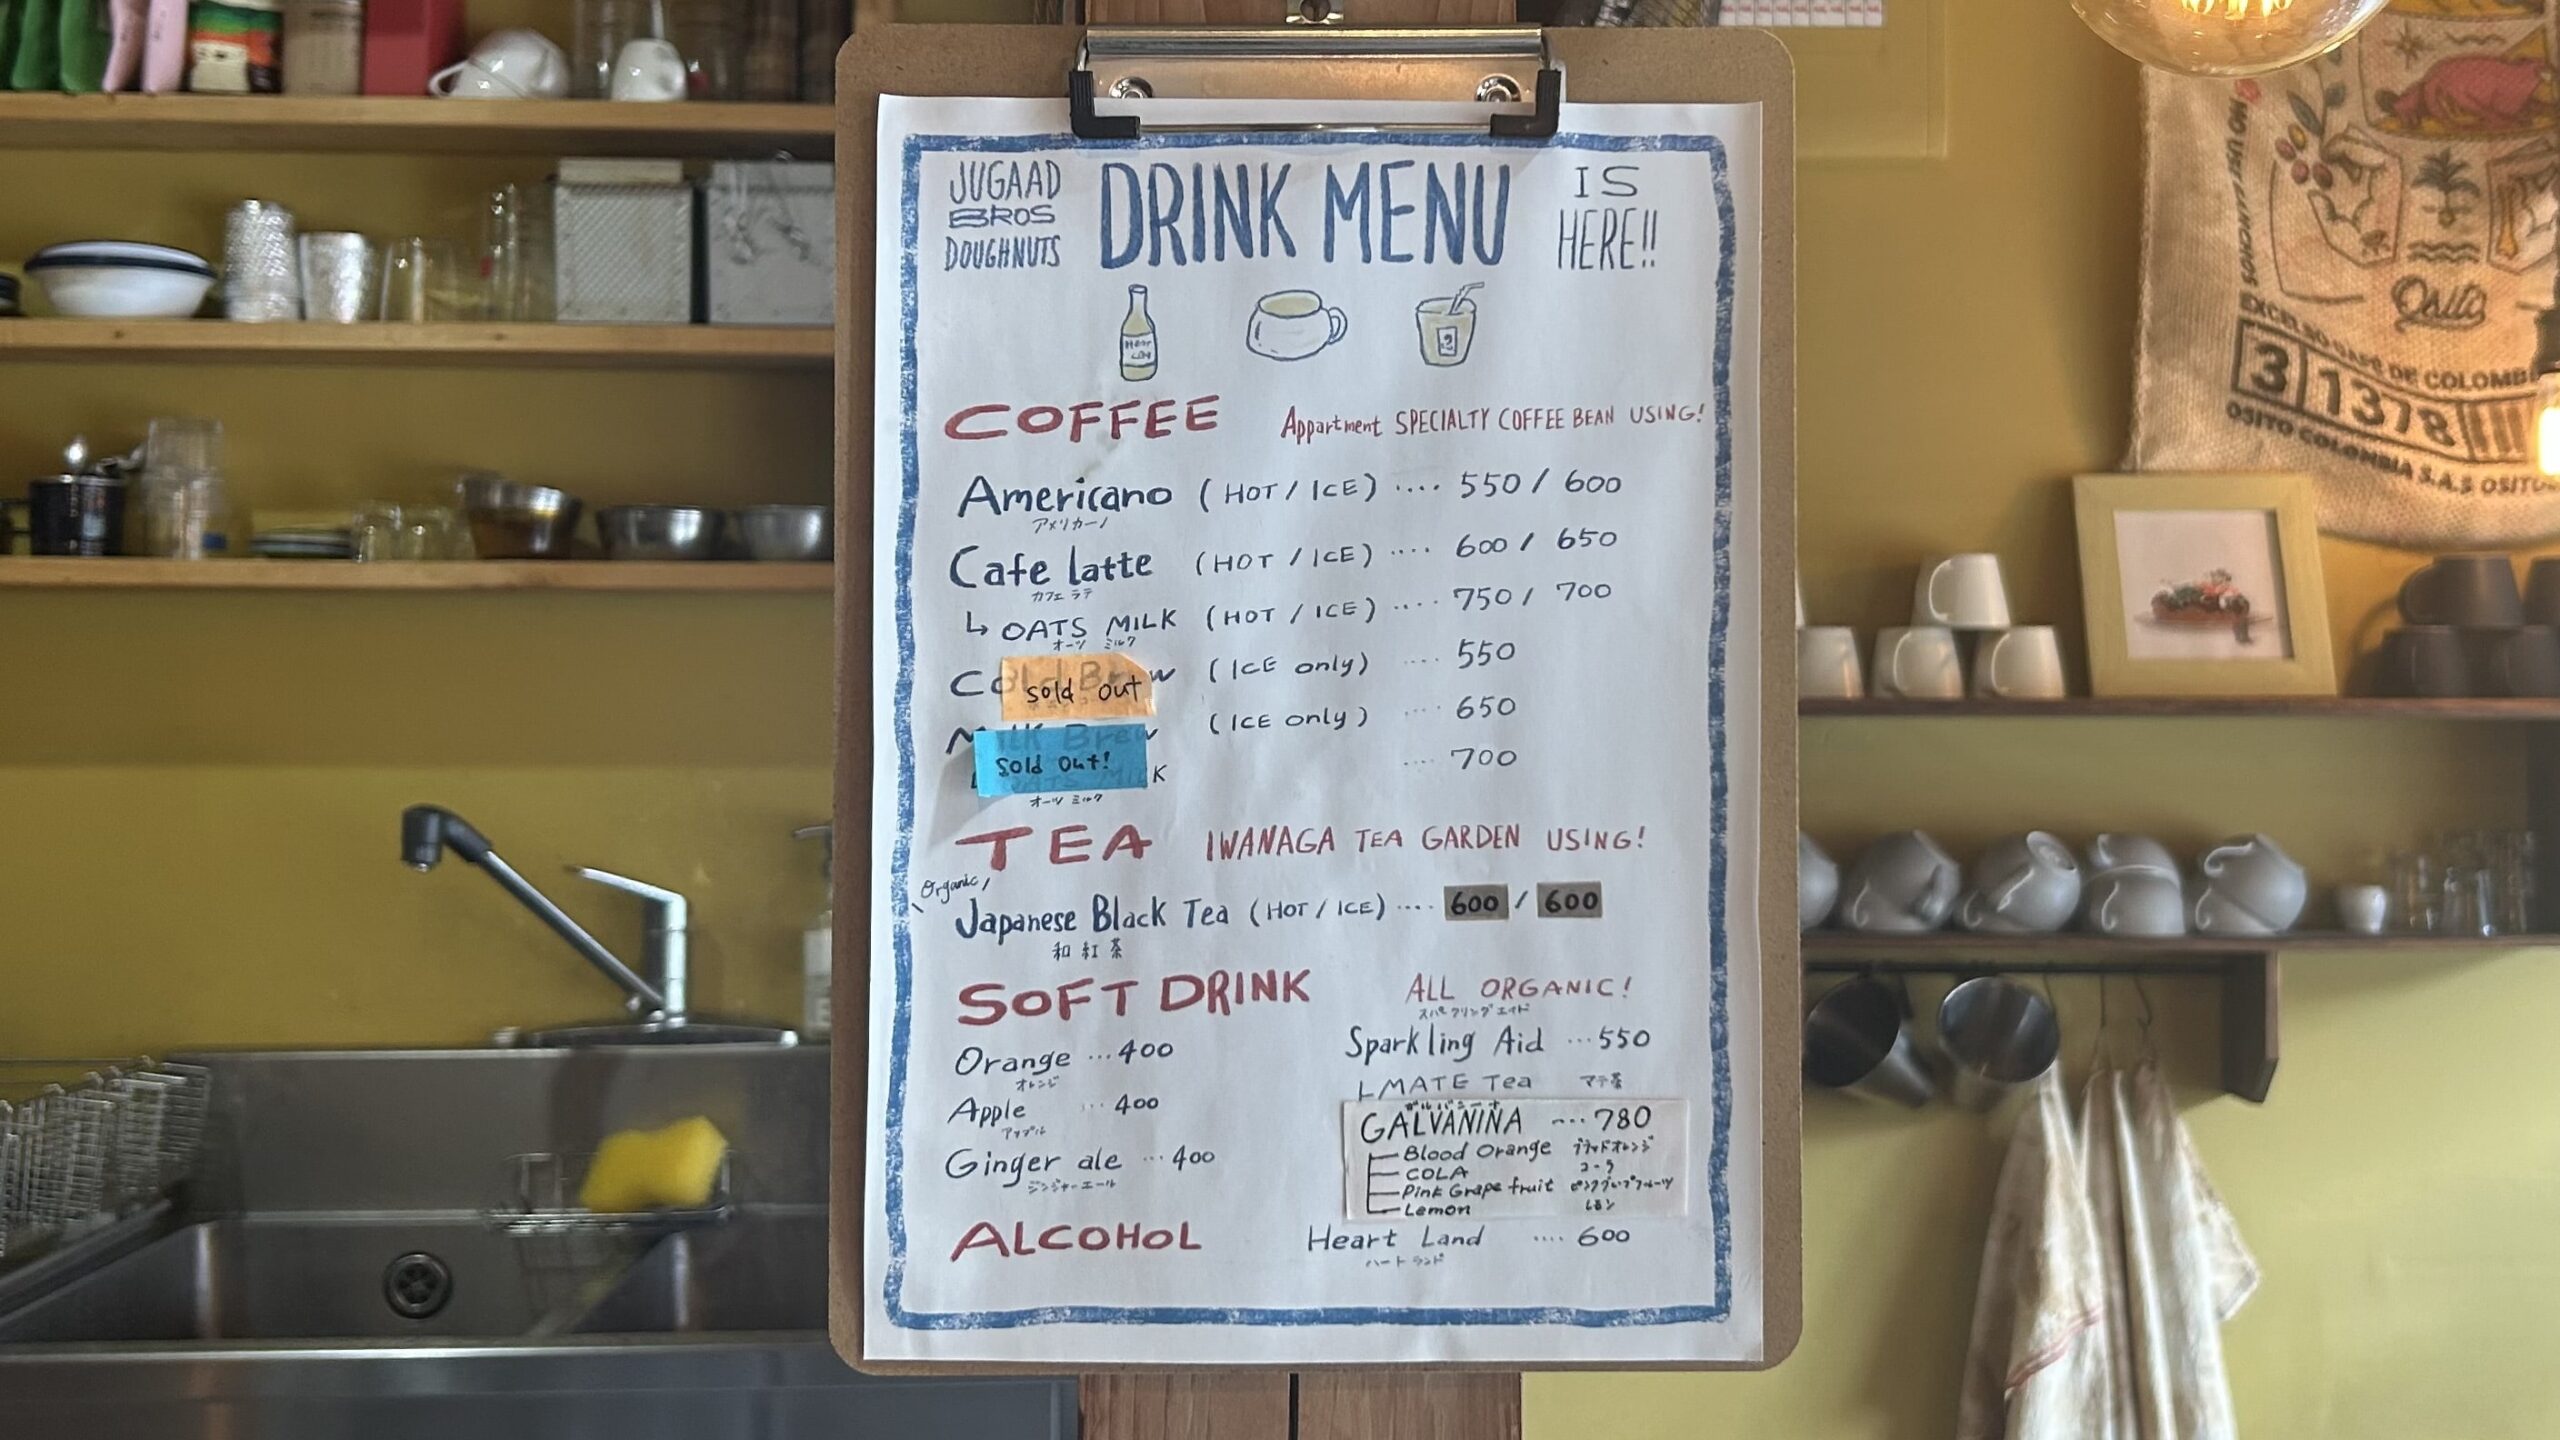 JUGAAD
BROS
DOUGHNUTS
DRINK MENU
IS
HERE!!
COFFEE Appartment SPECIALTY COFFEE BEAN USING!
Americano (HOT / ICE) .... 550 / 600
アメリカーノ
Cafe latte (HOT / ICE) .... 600 / 650
カフェ ラテ
↳ OATS MILK (HOT / ICE) .... 750 / 700
オーツ ミルク
Cold Brew (ICE only) .... 550
sold out
Milk Brew (ICE only) .... 650
Sold Out!
OATS MILK .... 700
オーツ ミルク
TEA IWANAGA TEA GARDEN USING!
Organic
Japanese Black Tea (HOT / ICE) .... 600 / 600
和紅茶
SOFT DRINK ALL ORGANIC!
Orange ... 400
オレンジ
Apple ... 400
アップル
Ginger ale ... 400
ジンジャーエール
スパークリングエイド
Sparkling Aid ... 550
MATE Tea マテ茶
ガルバニーナ
GALVANINA .... 780
Blood Orange ブラッドオレンジ
COLA コーラ
Pink Grape fruit ピンクグレープフルーツ
Lemon レモン
ALCOHOL Heart Land .... 600
ハートランド
Osito
EXCELSO
CAFE DE COLOMBIA
3 1378
OSITO COLOMBIA S.A.S OSITO